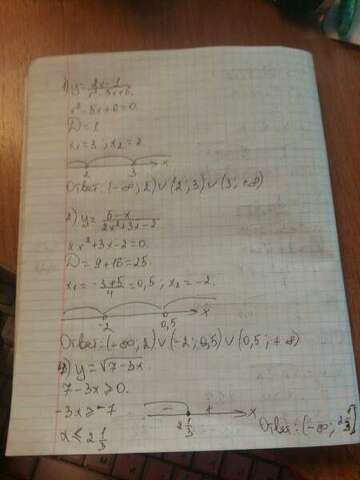 1) y = 2x-1 / x²-5x+6
x²-5x+6=0.
D=1
x₁=3; x₂=2
2 3 x
Ответ: (-∞; 2) ∨ (2; 3) ∨ (3; +∞)
2) y = 6-x / 2x²+3x-2
x²+3x-2=0.
D=9+16=25.
x₁ = -3+5 / 4 = 0,5; x₂=-2.
-2 0,5 x
Ответ: (-∞, 2) ∨ (-2; 0,5) ∨ (0,5; +∞)
y = √7-3x
7-3x≥0.
-3x≥-7
- + x
x ≤ 2 1/3
2 1/3
Ответ: (-∞; 2 1/3]